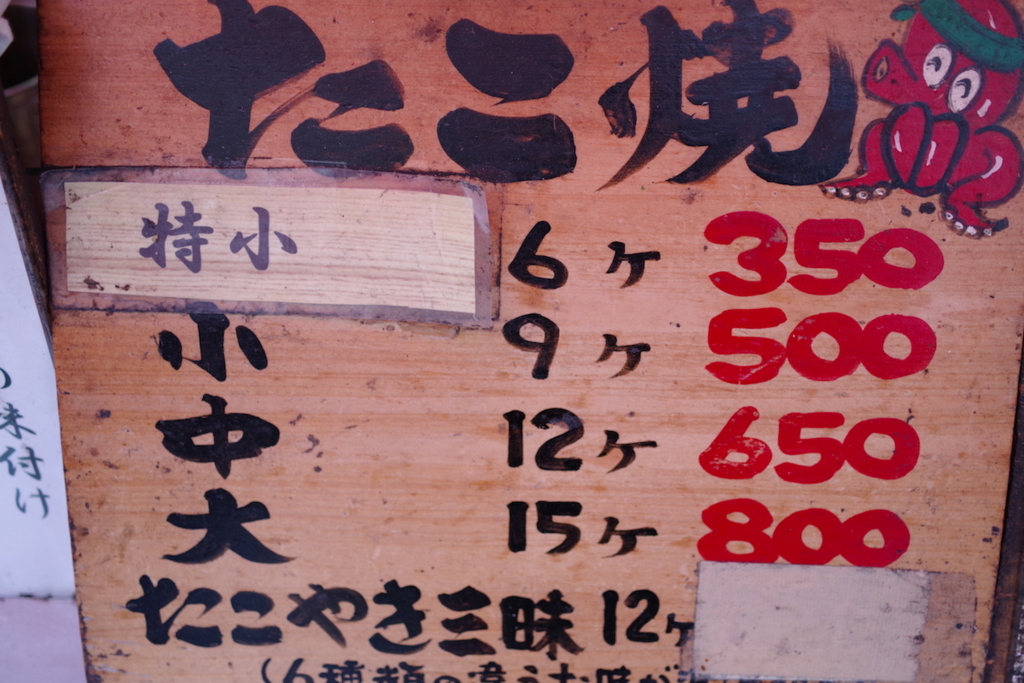 たこ焼
特小 6ヶ 350
小 9ヶ 500
中 12ヶ 650
大 15ヶ 800
たこやき三昧 12ヶ
(6種類の違うお味が
味付け